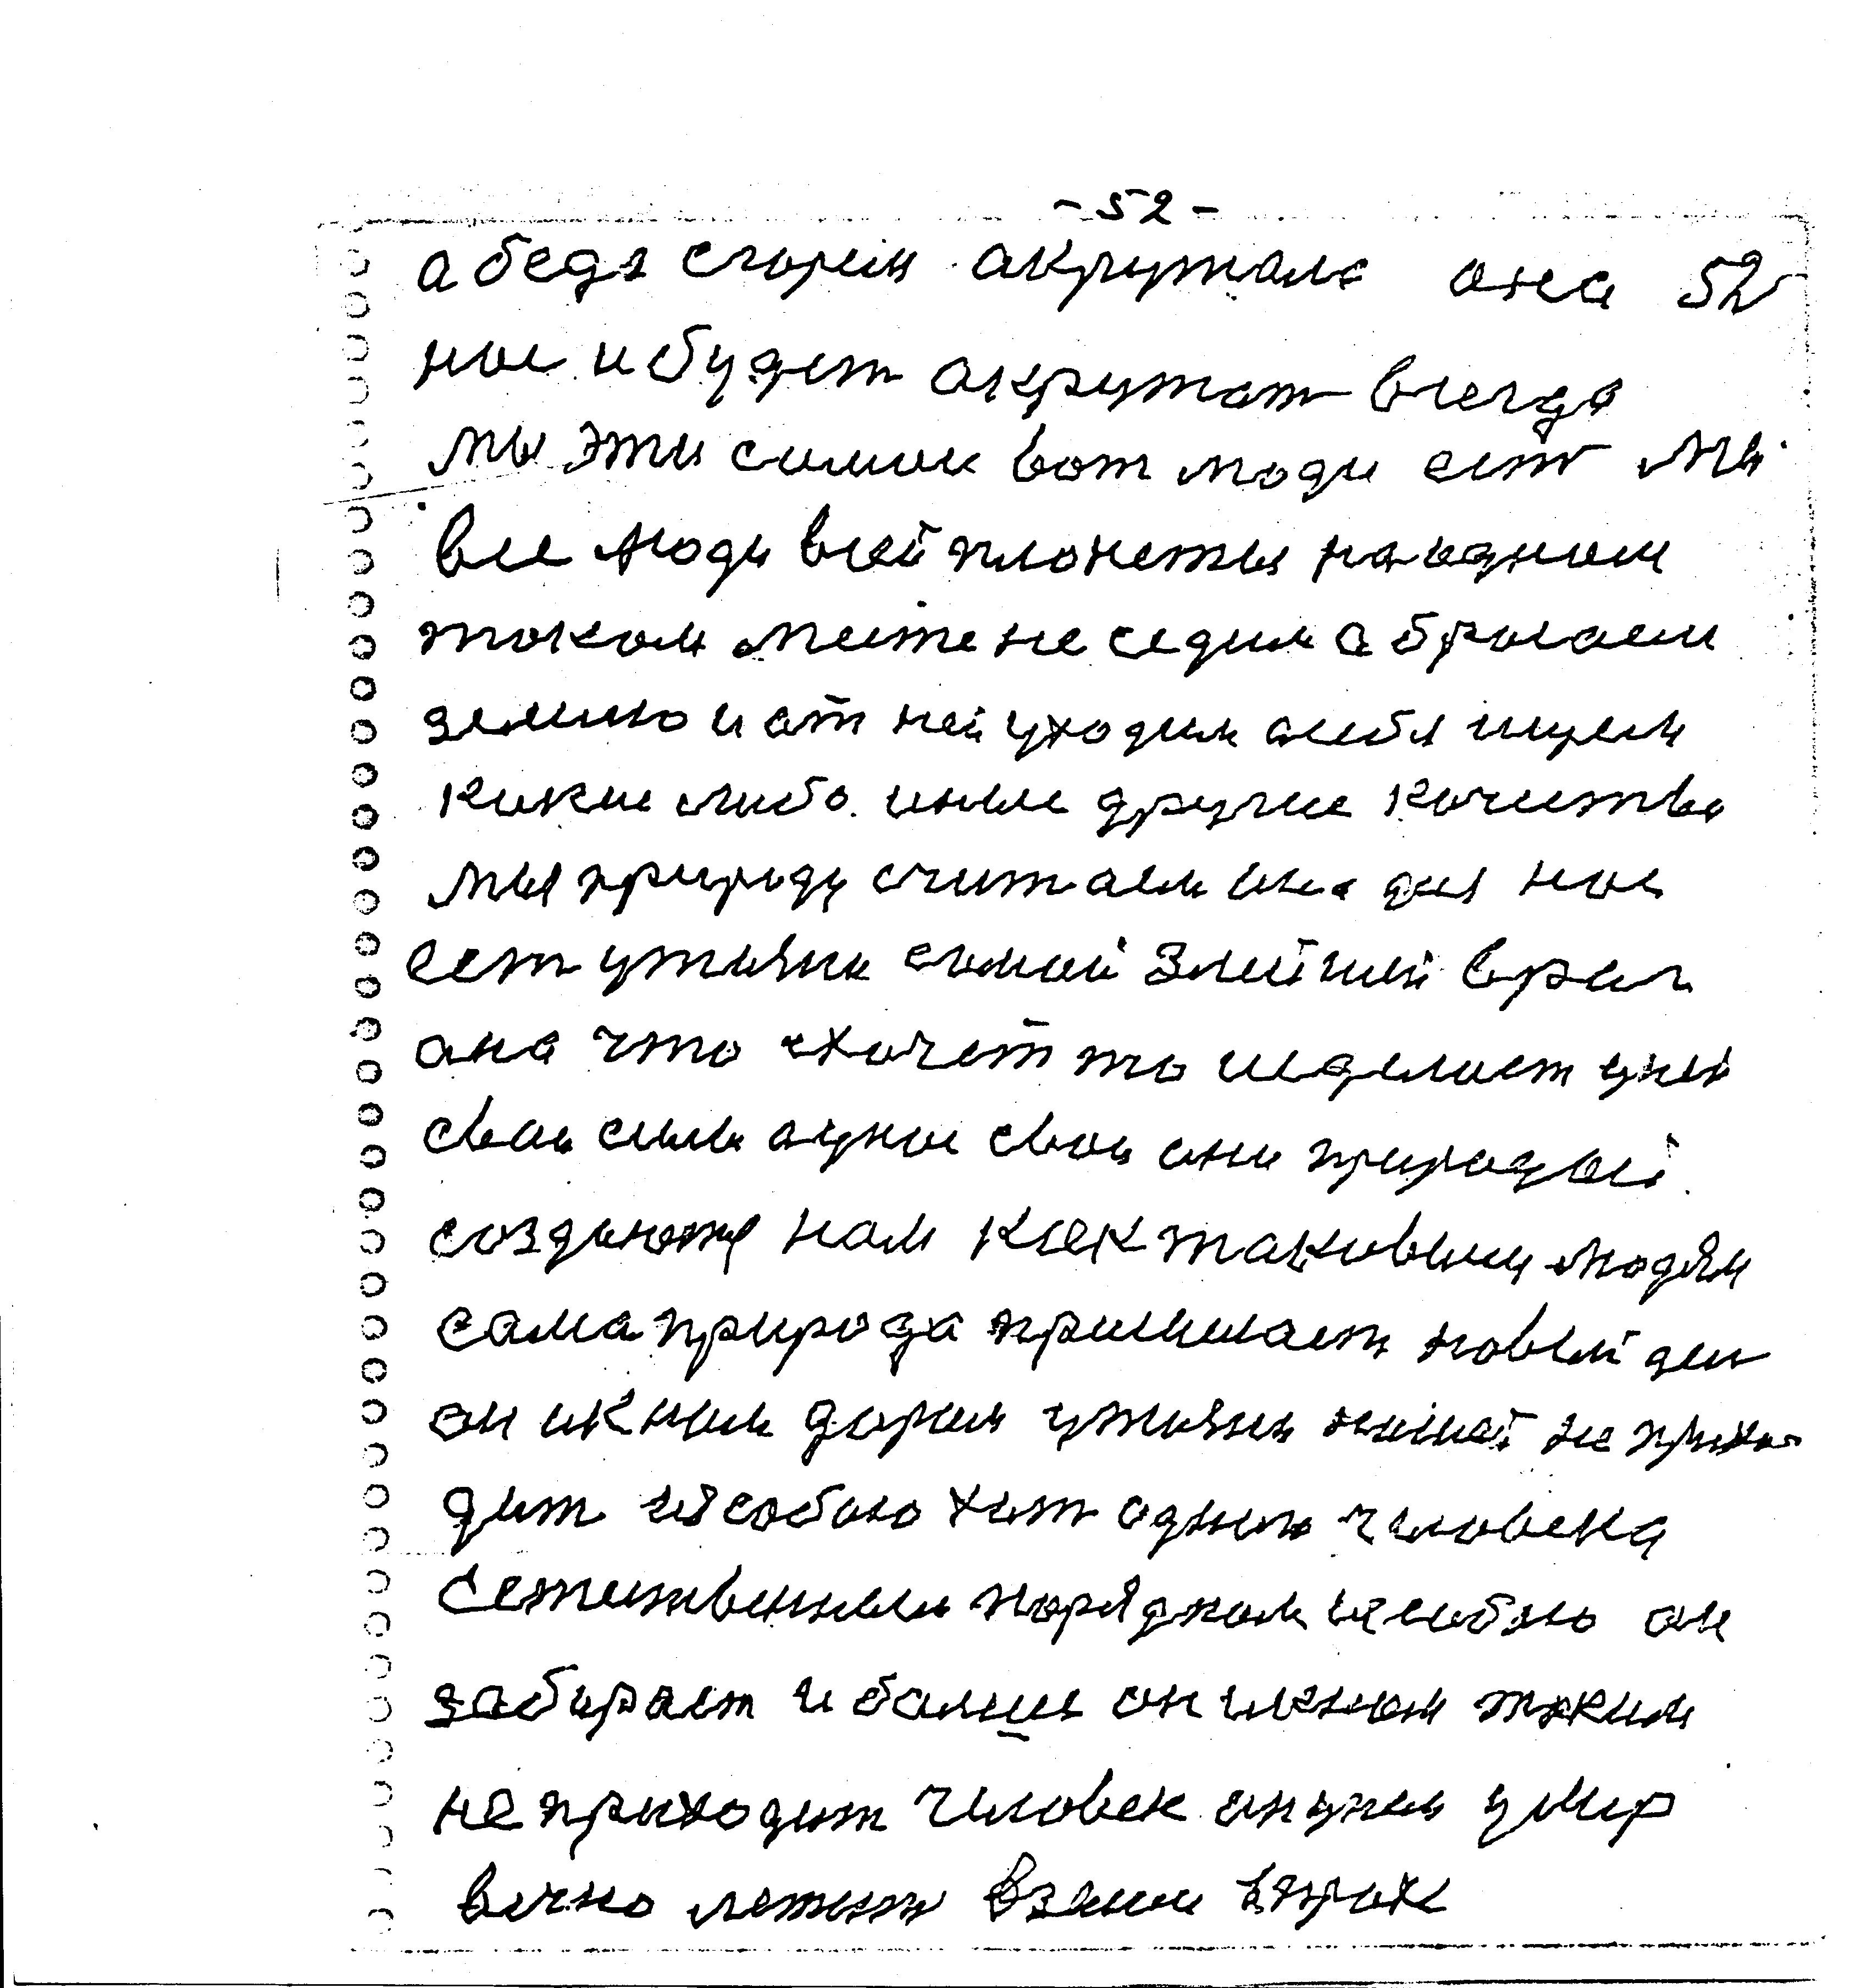 - 52 -
а беда с горем акружала она 52
нас и будет акружат всегда
мы эти самои вот люди ест мы
все люди всей планеты на адном
таком месте не седим а брасаем
землю и от ней уходим сибя ищем
какие либо иные другие качиства
мы природу считаем она для нас
ест утаяна самой злейший враг
ана что схочет то изделает у ней
сваи силы аднои сваи они природай
создаюту нам как таковым людям
сама природа присилает новый ден
он ик нам даром утаяна не приха
дит и собою хот аднаго человека
сетиственным порядком исобою он
забирает и болше он ик нам таким
не приходит человек он у нем умир
вечно лежит в земли в прахе